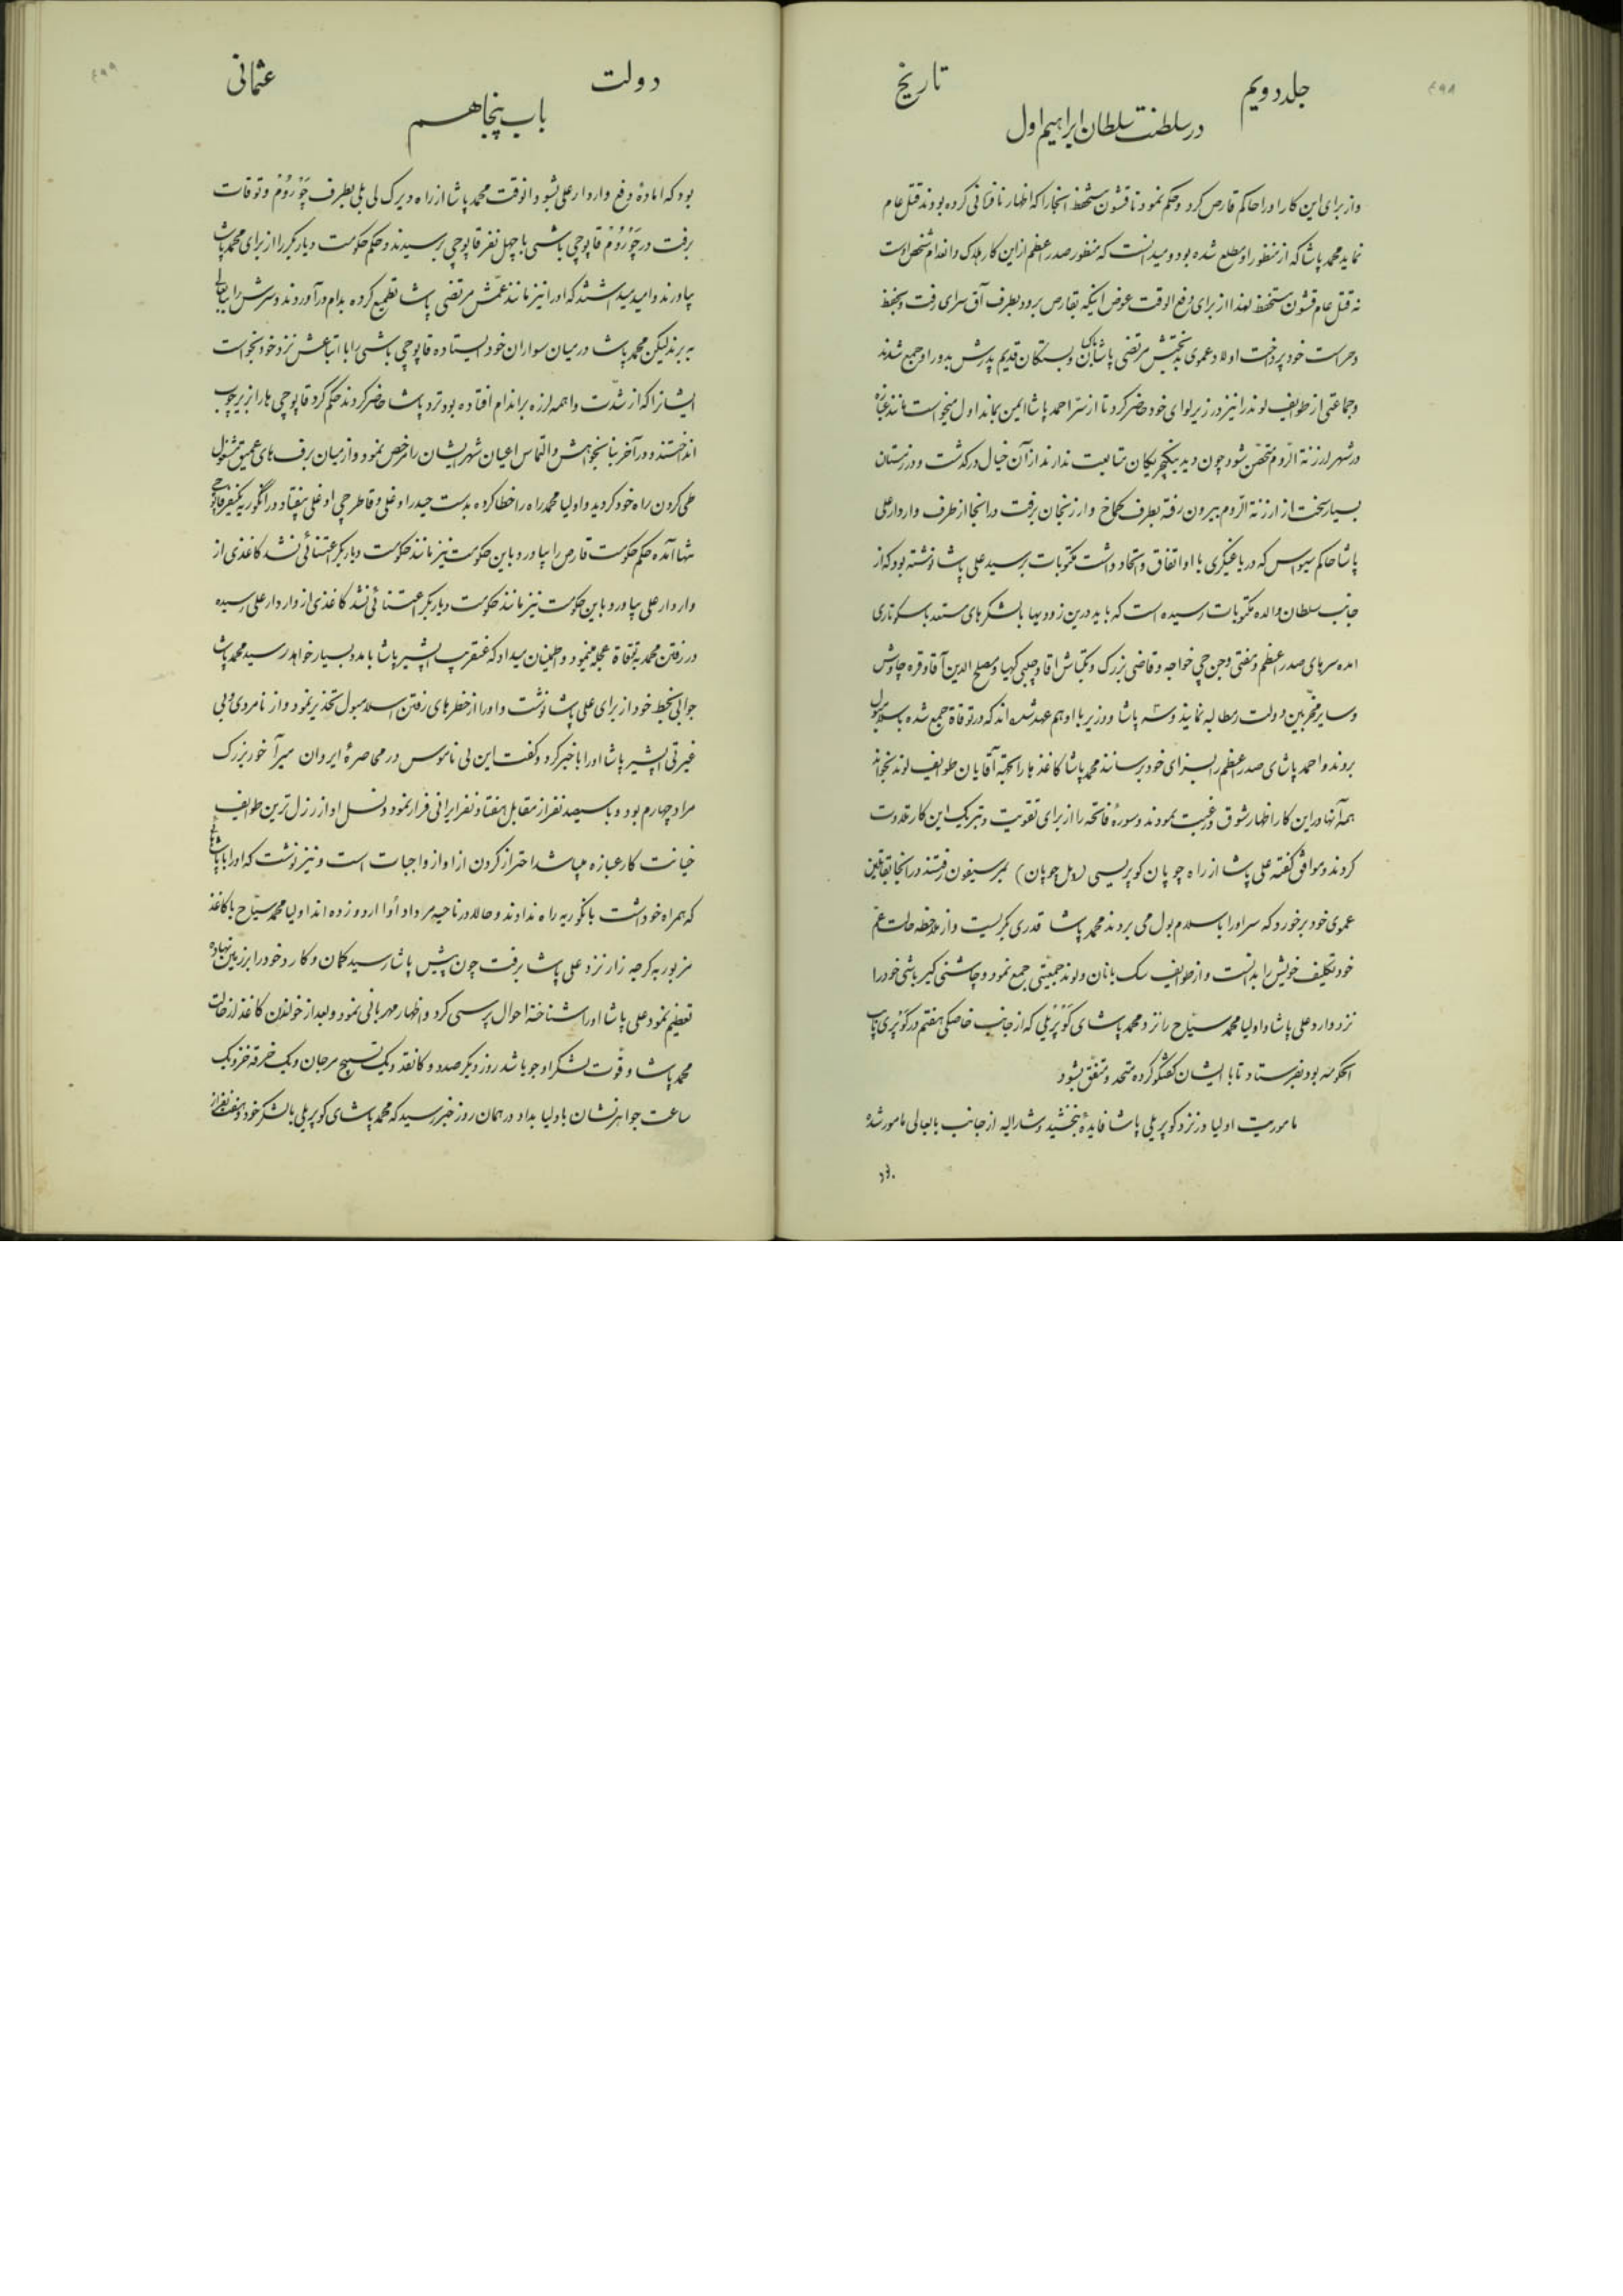 ۴۹۸
جلد دویم
تاریخ
در سلطنت سلطان ابراهیم اول
و از برای این کار او را حاکم قارص کرد و حکم نمود تا قشون مستحفظ آنجا را که اظهار نافرمانی کرده بودند قتل عام
نماید محمد پاشا که از منظور او مطلع شده بود و میدانست که منظور صدر اعظم از این کار هلاک و انعدام شخص اوست
نه قتل عام قشون مستحفظ لهذا از برای دفع الوقت عوض اینکه بقارص برود بطرف آق سرای رفت و بحفظ
و حراست خود پرداخت اولاد عموی بدبختش مرتضی پاشا و بستگان قدیم پدرش بدور او جمع شدند
و جماعتی از طوایف لوند را نیز در زیر لوای خود حاضر کرد تا از شر احمد پاشا ایمن بماند اول میخواست مانند
در شهر ارزنة الروم متحصن شود چون دید ینگچریکان متابعت ندارند از آن خیال درگذشت و در زمستان
بسیار سخت از ارزنة الروم بیرون رفته بطرف کماخ و ارزنجان برفت در آنجا از طرف واردار علی
پاشا حاکم سیواس که در یاغیگری با او اتفاق و اتحاد داشت مکتوبات برسید علی پاشا نوشته بود که از
جانب سلطان والده مکتوبات رسیده است که باید درین زودیها با لشکرهای مستعد باسکوتاری
آمده سرهای صدر اعظم و مفتی و جن جی خواجه و قاضی بزرگ و بکتاش آقا و چلبی کهیا و مصلح الدین آقا و قره چاوش
و سایر مخربین دولت را مطالبه نمایند و شه پاشا و وزیر با او هم عهد شده اند که در توقاة جمع شده باسلامبول
بروند و احمد پاشای صدر اعظم را بسزای خود برسانند محمد پاشا کاغذها را بجهة آقایان طوایف لوند بخواند
همه آنها در این کار اظهار شوق و رغبت نمودند و سورۀ فاتحه را از برای تقویت و تبریک این کار تلاوت
کردند و موافق گفته علی پاشا از راه چوپان کوپریسی (پل چوپان) بمرسیفون رفتند در آنجا بقاتلین
عموی خود برخورد که سر او را باسلامبول می بردند محمد پاشا قدری بگریست و از ملاحظه حالت عم
خود تکلیف خویش را بدانست و از طوایف سک بانان و لوند جمعیتی جمع نمود و چاشنی گیر باشی خود را
نزد واردار علی پاشا و اولیا محمد سیاح را نزد محمد پاشای کوپریلی که از جانب خاصکی هفتم در کوپری پاشای
آنحکومه بود بفرستاد تا با ایشان گفتگو کرده متحد و متفق بشود
ماموریت اولیا در نزد کوپریلی پاشا فایدۀ نبخشید و مشارالیه از جانب بابعالی مامور شده
۴۹۹
دولت
عثمانی
باب پنجاهم
بود که امادۀ دفع واردار علی بشود انوقت محمد پاشا از راه دیرک لی بلی بطرف چوروم و توقات
برفت در چوروم قاپوچی باشی با چهل نفر قاپوچی برسیدند و حکم حکومت دیاربکر را از برای محمد پاشا
بیاورند و امید میداشتند که او را نیز مانند عمش مرتضی پاشا تطمیع کرده بدام درآوردند و سرش را
ببرند لیکن محمد پاشا در میان سواران خود ایستاده قاپوچی باشی را با اتباعش نزد خود بخواست
ایشانرا که از شدت واهمه لرزه براندام افتاده بود نزد پاشا حاضر کردند حکم کرد قاپوچی ها را بزیر چوب
انداختند و در آخر بنا بخواهش و التماس اعیان شهر ایشان را مرخص نمود و از میان برف های عمیق مشغول
طی کردن راه خود گردید و اولیا محمد راه را خطا کرده بدست حیدر اوغلی و قاطرچی اوغلی بیفتاد در انگوریه یکنفر قاپوچی
تنها آمده حکم حکومت قارص را بیاورد و باین حکومت نیز مانند حکومت دیاربکر اعتنائی نشد کاغذی از
واردار علی بیاورد و باین حکومت نیز مانند حکومت دیاربکر اعتنائی نشد کاغذی از واردار علی رسیده
در رفتن محمد بتوقاة عجله مینمود و اطمینان میداد که عنقریب ابشیر پاشا بامداد بسیار خواهد رسید محمد پاشا
جوابی بخط خود از برای علی پاشا نوشت و او را از خطرهای رفتن اسلامبول تحذیر نمود و از نامردی و بی
غیرتی ابشیر پاشا او را باخبر کرد و گفت این بی ناموس در محاصرۀ ایروان میرآخور بزرگ
مراد چهارم بود و با سیصد نفر از مقابل هفتاد نفر ایرانی فرار نمود و نسل او از رذل ترین طوایف
خیانت کار عبازه میباشد احتراز کردن از او از واجبات است و نیز نوشت که او را با پاشاهائی
که همراه خود داشت بانگوریه راه ندادند و حالا در ناحیه مرداد اوا اردو زده اند اولیا محمد سیاح با کاغذ
مزبور به کرجه زار نزد علی پاشا برفت چون پیش پاشا رسید کمان و کارد خود را بر زمین نهاده
تعظیم نمود علی پاشا او را شناخته احوال پرسی کرد و اظهار مهربانی نمود و بعد از خواندن کاغذ از حالت
محمد پاشا و قوت لشکر او جویا شد روز دیگر صد دوکا نقد و یک تسبیح مرجان و یک خرقه خز و یک
ساعت جواهر نشان باولیا بداد در همان روز خبر رسید که محمد پاشای کوپریلی با لشکر خود و هفت نفر از